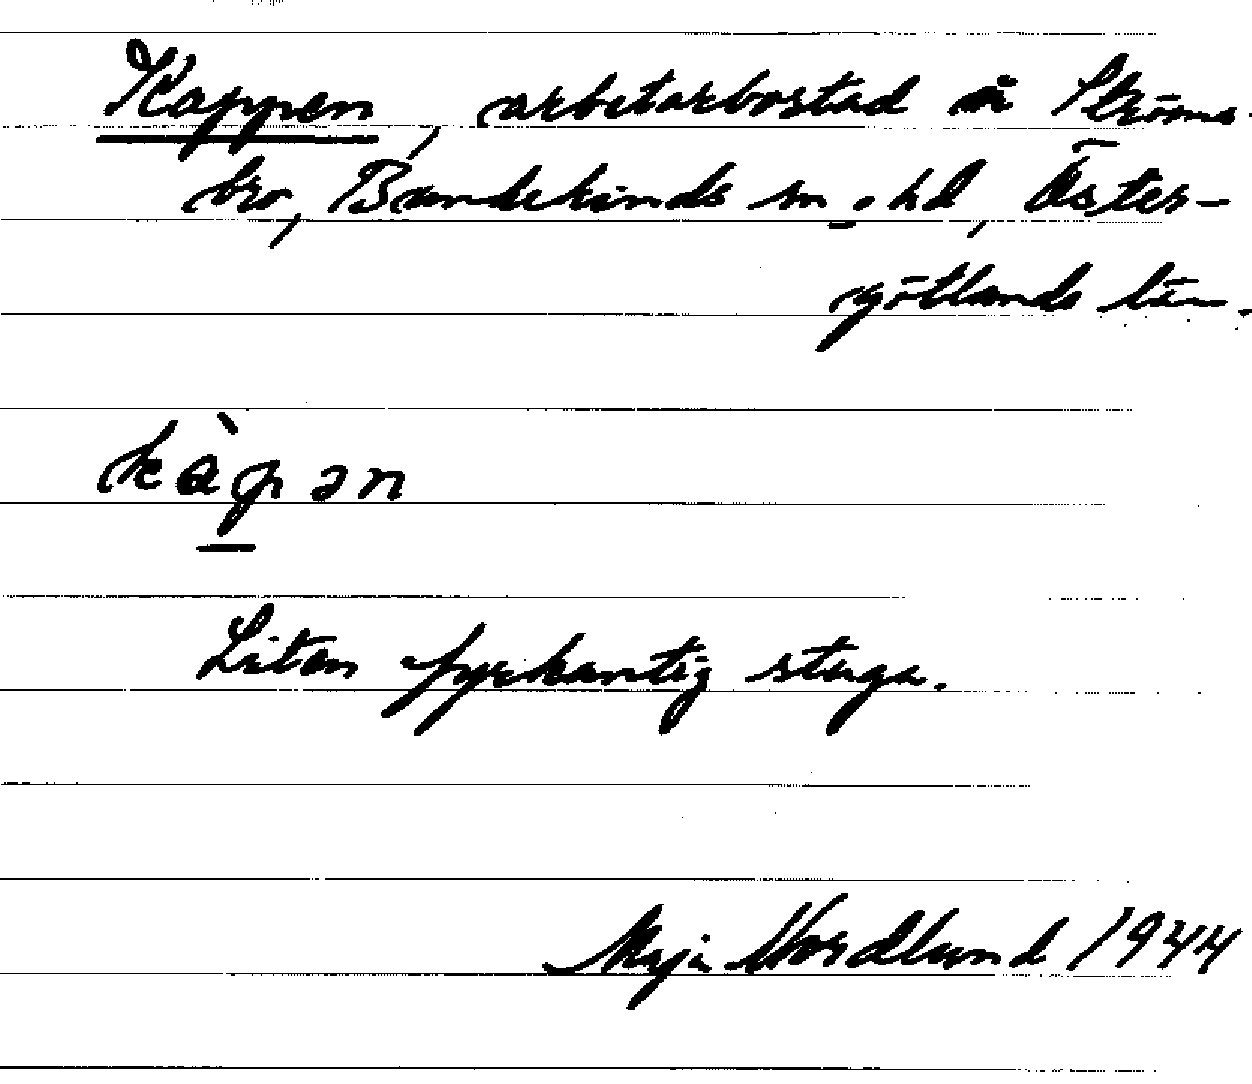 Kappen, arbetarbostad å Ströms-
bro, Bandekinds sn o hd, Öster-
götlands län.
kàpən
Liten fyrkantig stuga.
Maja Nordlund 1944